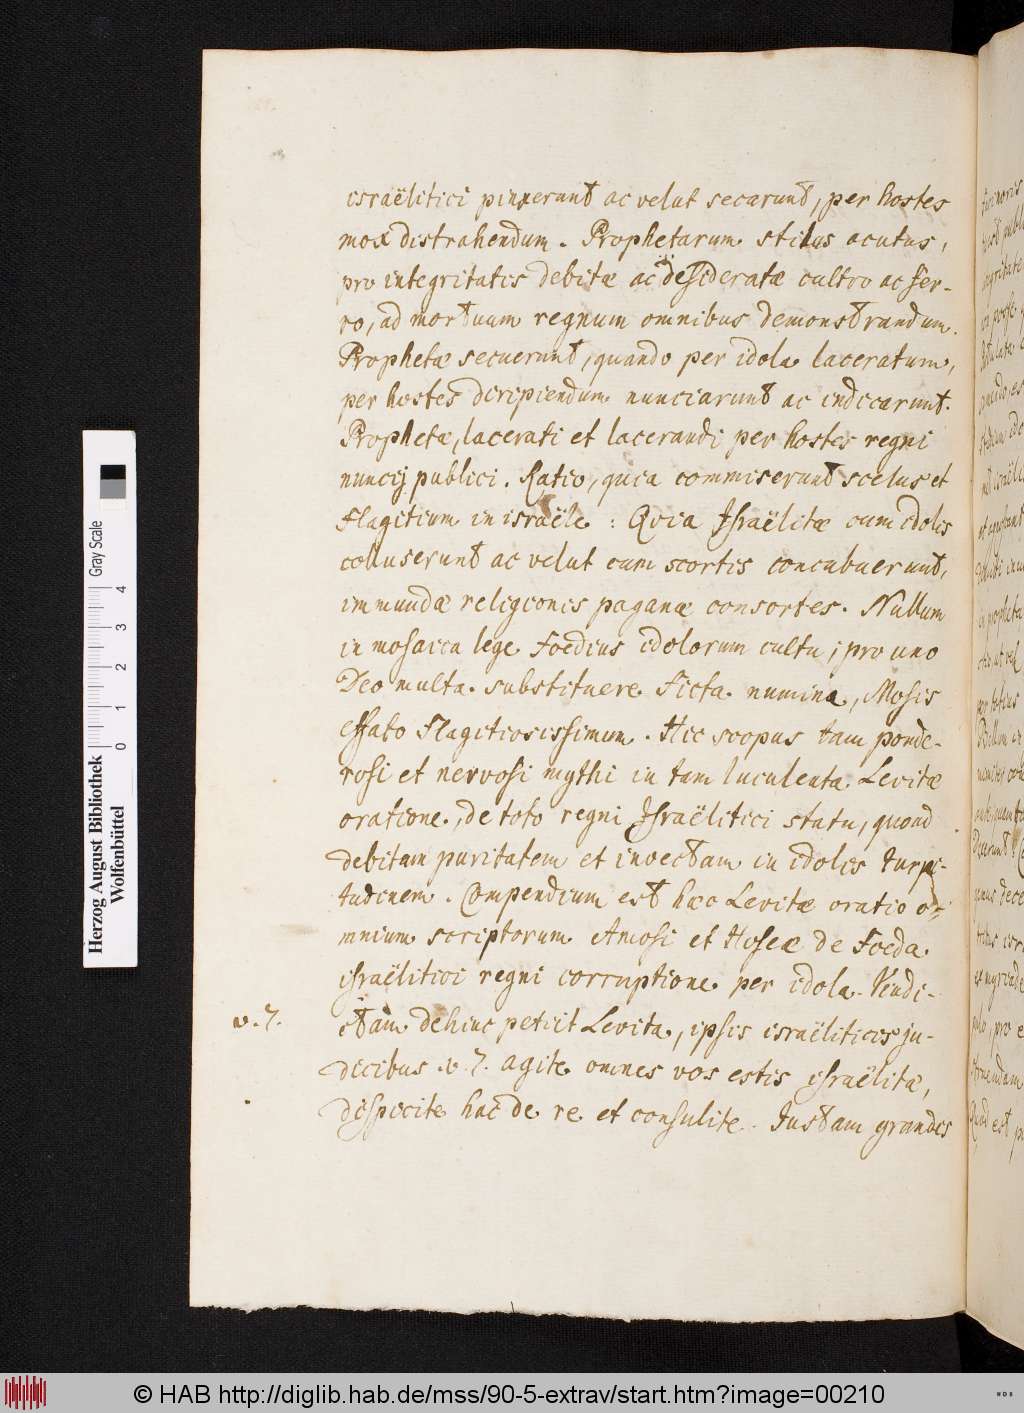 israëlitici pinxerunt ac velut secarunt, per hostes
mox distrahendum. Prophetarum stilus acutus,
pro integritatis debitæ ac desideratæ cultro ac fer-
ro, ad mortuum regnum omnibus demonstrandum.
Prophetæ secuerunt, quando per idola laceratum,
per hostes diripiendum nunciarunt ac indicarunt.
Prophetæ, lacerati et lacerandi per hostes regni
nuncij publici. Ratio, quia commiserunt scelus et
flagitium in israële: Qvia Israëlitæ cum idolis
colluserunt ac velut cum scortis concubuerunt,
immundæ religionis paganæ consortes. Nullum
in mosaica lege foedius idolorum cultu; pro uno
Deo multa substituere ficta numina, Mosis
effato flagitiosissimum. Hic scopus tam ponde-
rosi et nervosi mythi in tam luculenta Levitæ
oratione, de toto regni Israëlitici statu, quoad
debitam puritatem et invectam in idolis turpi-
tudinem. Compendium est hæc Levitæ oratio o-
mnium scriptorum Amosi et Hoseæ de foeda
israëlitici regni corruptione per idola. Vindi-
v. 7. ctam dehinc petiit Levita, ipsis israëliticis ju-
dicibus. v. 7. agite omnes vos estis israëlitæ,
dispicite hac de re et consulite. Justam grandis
Herzog August Bibliothek
Wolfenbüttel
0 1 2 3 4
Gray Scale
© HAB http://diglib.hab.de/mss/90-5-extrav/start.htm?image=00210